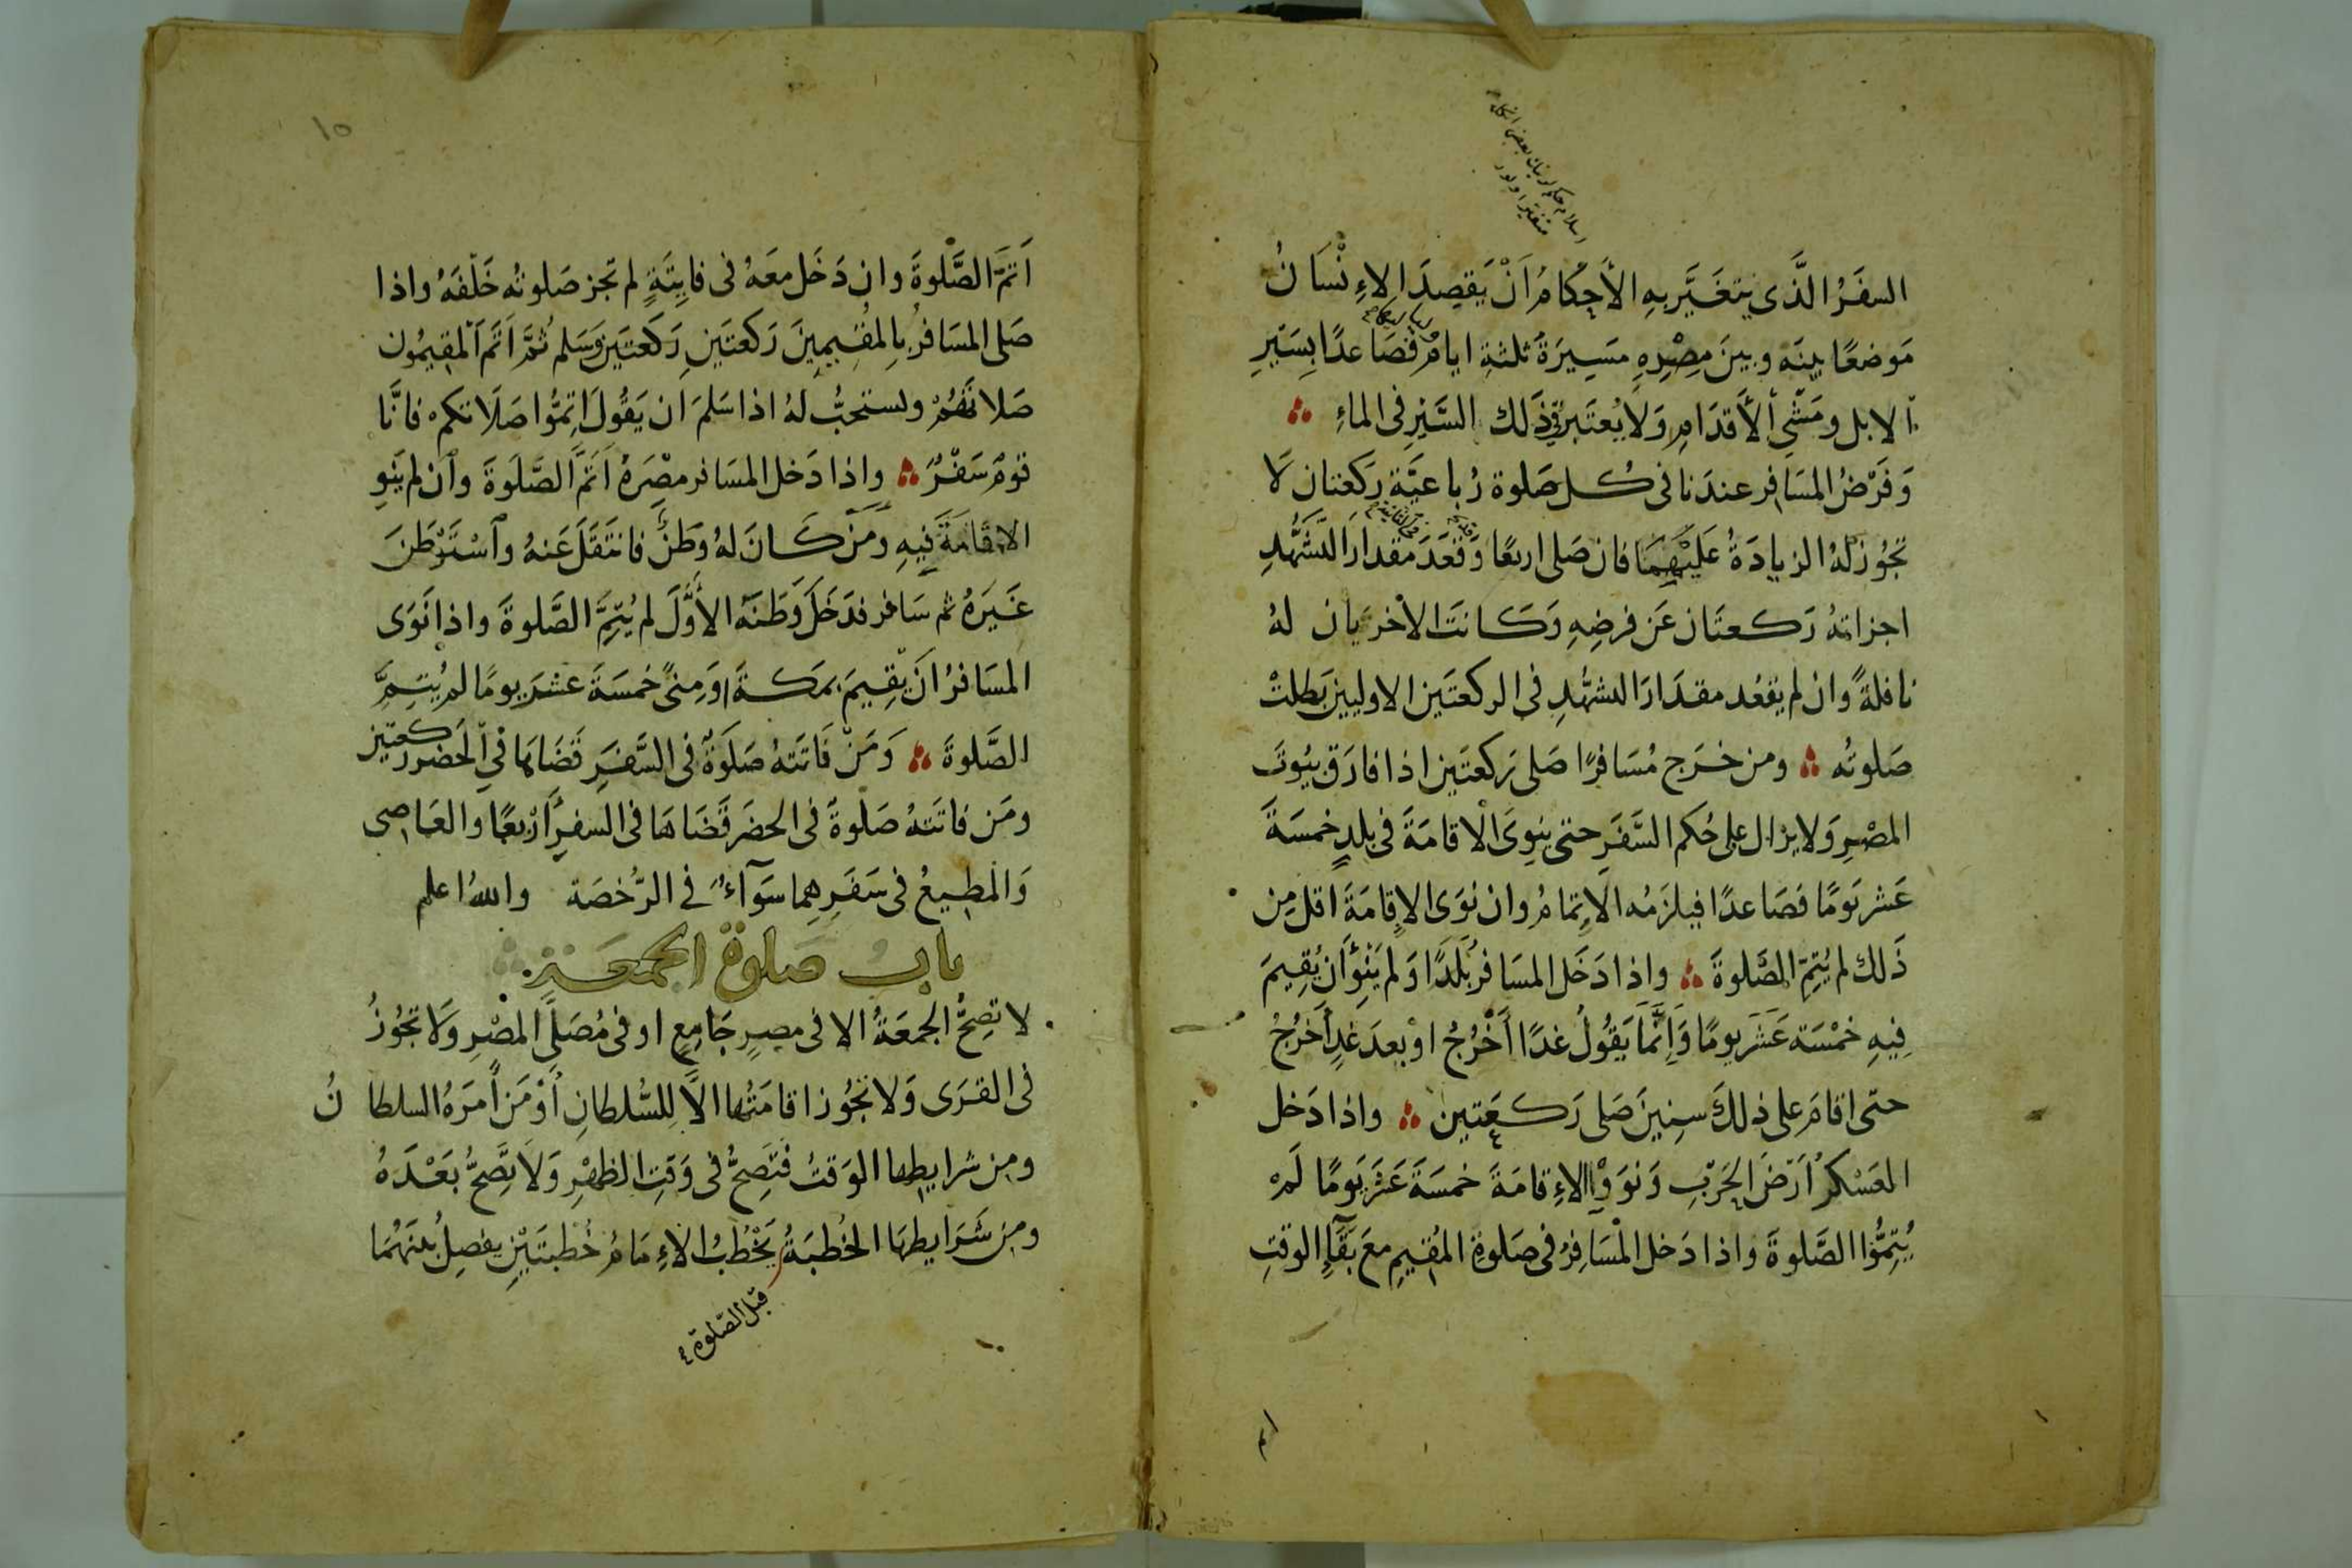 السفَرُ الَّذى يتغَيَّر بهِ الأَحكامُ اَنْ يَقصِدَ الاِءنْسَانُ
مَوضعًا بينَه وبينَ مِصْرِهِ مَسِيرَةَ ثلثةِ ايامٍ فصَاعدًا بِسَيْرِ
الابل ومَشْىِ الأَقدَامِ وَلَا يُعتَبر فى ذَلك السَّيْرِ فى الماءِ
وَفَرْضُ المسَافِر عندَنا فى كُل صَلوة رُباعيَّة ركعتان لَا
تجُوزُ لهُ الزيادَةُ عَلَيْهِمَا فان صَلى اربعًا وَقعَدَ مقدارَ التَّشَهُّدِ
فى الثانية
اجزاتهُ رَكعتَان عَن فرضِهِ وَكانتَ الأخرَيان لهُ
نافلةً وان لم يقعُد مقدَارَ التشهُّدِ فى الركعتَين الاوليين بَطلتْ
صَلوتُه ومن خرَج مُسَافرًا صَلى رَكعتَين اذا فارَق بيُوتَ
المصْرِ وَلا يزال على حُكم السَّفَرِ حتى ينوِىَ الْاقامَةَ فى بلدٍ خمسَةَ
عَشر يَومًا فصَاعدًا فيلزَمُه الاتِمامُ وان نوَى الاِقامَةَ اقل مِن
ذَلك لم يُتِمَّ الصَّلوةَ واذا دَخَل المسَافرُ بَلَدًا وَلم يَنْوِ أَن يُقيمَ
فِيهِ خمْسَة عَشَر يومًا وَإِنَّمَا يَقُولُ غدًا أَخْرُجُ اوْ بعدَ غدٍ أَخرُجُ
حتى اقامَ على ذلكَ سنِينَ صَلى رَكعَتين واذا دَخل
العَسْكرُ اَرْضَ الحَرْبِ وَنوَوْا الاِءقامَةَ خمسَةَ عَشَرَ يَومًا لَمْ
يُتِمُّوا الصَّلوةَ واذا دَخل المْسَافِرُ فى صَلوةِ المُقيمِ معَ بَقَاءِ الوقتِ
١٥
اَتمَّ الصَّلوةَ وان دَخَل معَهُ فى فايتَةٍ لم تجز صَلوتُه خَلْفَهُ واذا
صَلى المسَافرُ بِالمُقِيمِينَ رَكعتَينِ رَكعتَين وَسَلم ثُمَّ اَتَمَّ المقيمُون
صَلاتَهُمْ ويستحبُّ لهُ اذا سَلمَ ان يَقُولَ اَتِمُّوا صَلَاتكم فانَّا
قومٌ سَفْرٌ واذا دَخل المسَافر مِصْرَهُ اَتمَّ الصَّلَوةَ وان لم يَنْوِ
الاقامَةَ فِيهِ وَمَن كانَ لهُ وَطَنٌ فانتَقَلَ عَنهُ واسْتَوْطَنَ
غَيرَهُ ثم سَافر فدَخَلَ وَطَنَهُ الأَوَّلَ لم يُتِمَّ الصَّلوةَ واذا نَوَى
المسَافرُ اَن يُقِيمَ بمَكةَ وَمِنىً خمسَةَ عشَرَ يومًا لم يُتِمَّ
الصَّلوةَ وَمَنْ فَاتَتهُ صَلَوةٌ فى السَّفَرِ قَضَاهَا فى الحَضر ركعتين
ومَن فاتَتهُ صَلوةٌ فى الحضَر قَضَاهَا فى السفرِ أَرْبعًا والعَاصى
وَالمطِيعُ فى سَفَرِهِما سَوَآءٌ فى الرُّخصَة واللهُ اعلم
بابُ صَلوة الجمعَة
لا تصِحُّ الجمعَةُ الا فى مصرٍ جَامِعٍ او فى مُصَلَّى المصْرِ وَلَا تجُوزُ
فى القرَى وَلا تجُوز اقامَتُها الاَّ لِلسُّلطانِ أَوْ مَن أَمَرَهُ السلطانُ
ومِن شرايطِها الوَقتُ فتَصِحُّ فى وَقتِ الظهْرِ وَلَا تَصِحُّ بَعْدَهُ
ومِن شَرَايطِهَا الخُطبَةُ يَخْطُبُ الاِءمَامُ خُطبتَيْنِ يفصِلُ بينَهُمَا
قبل الصّلوة